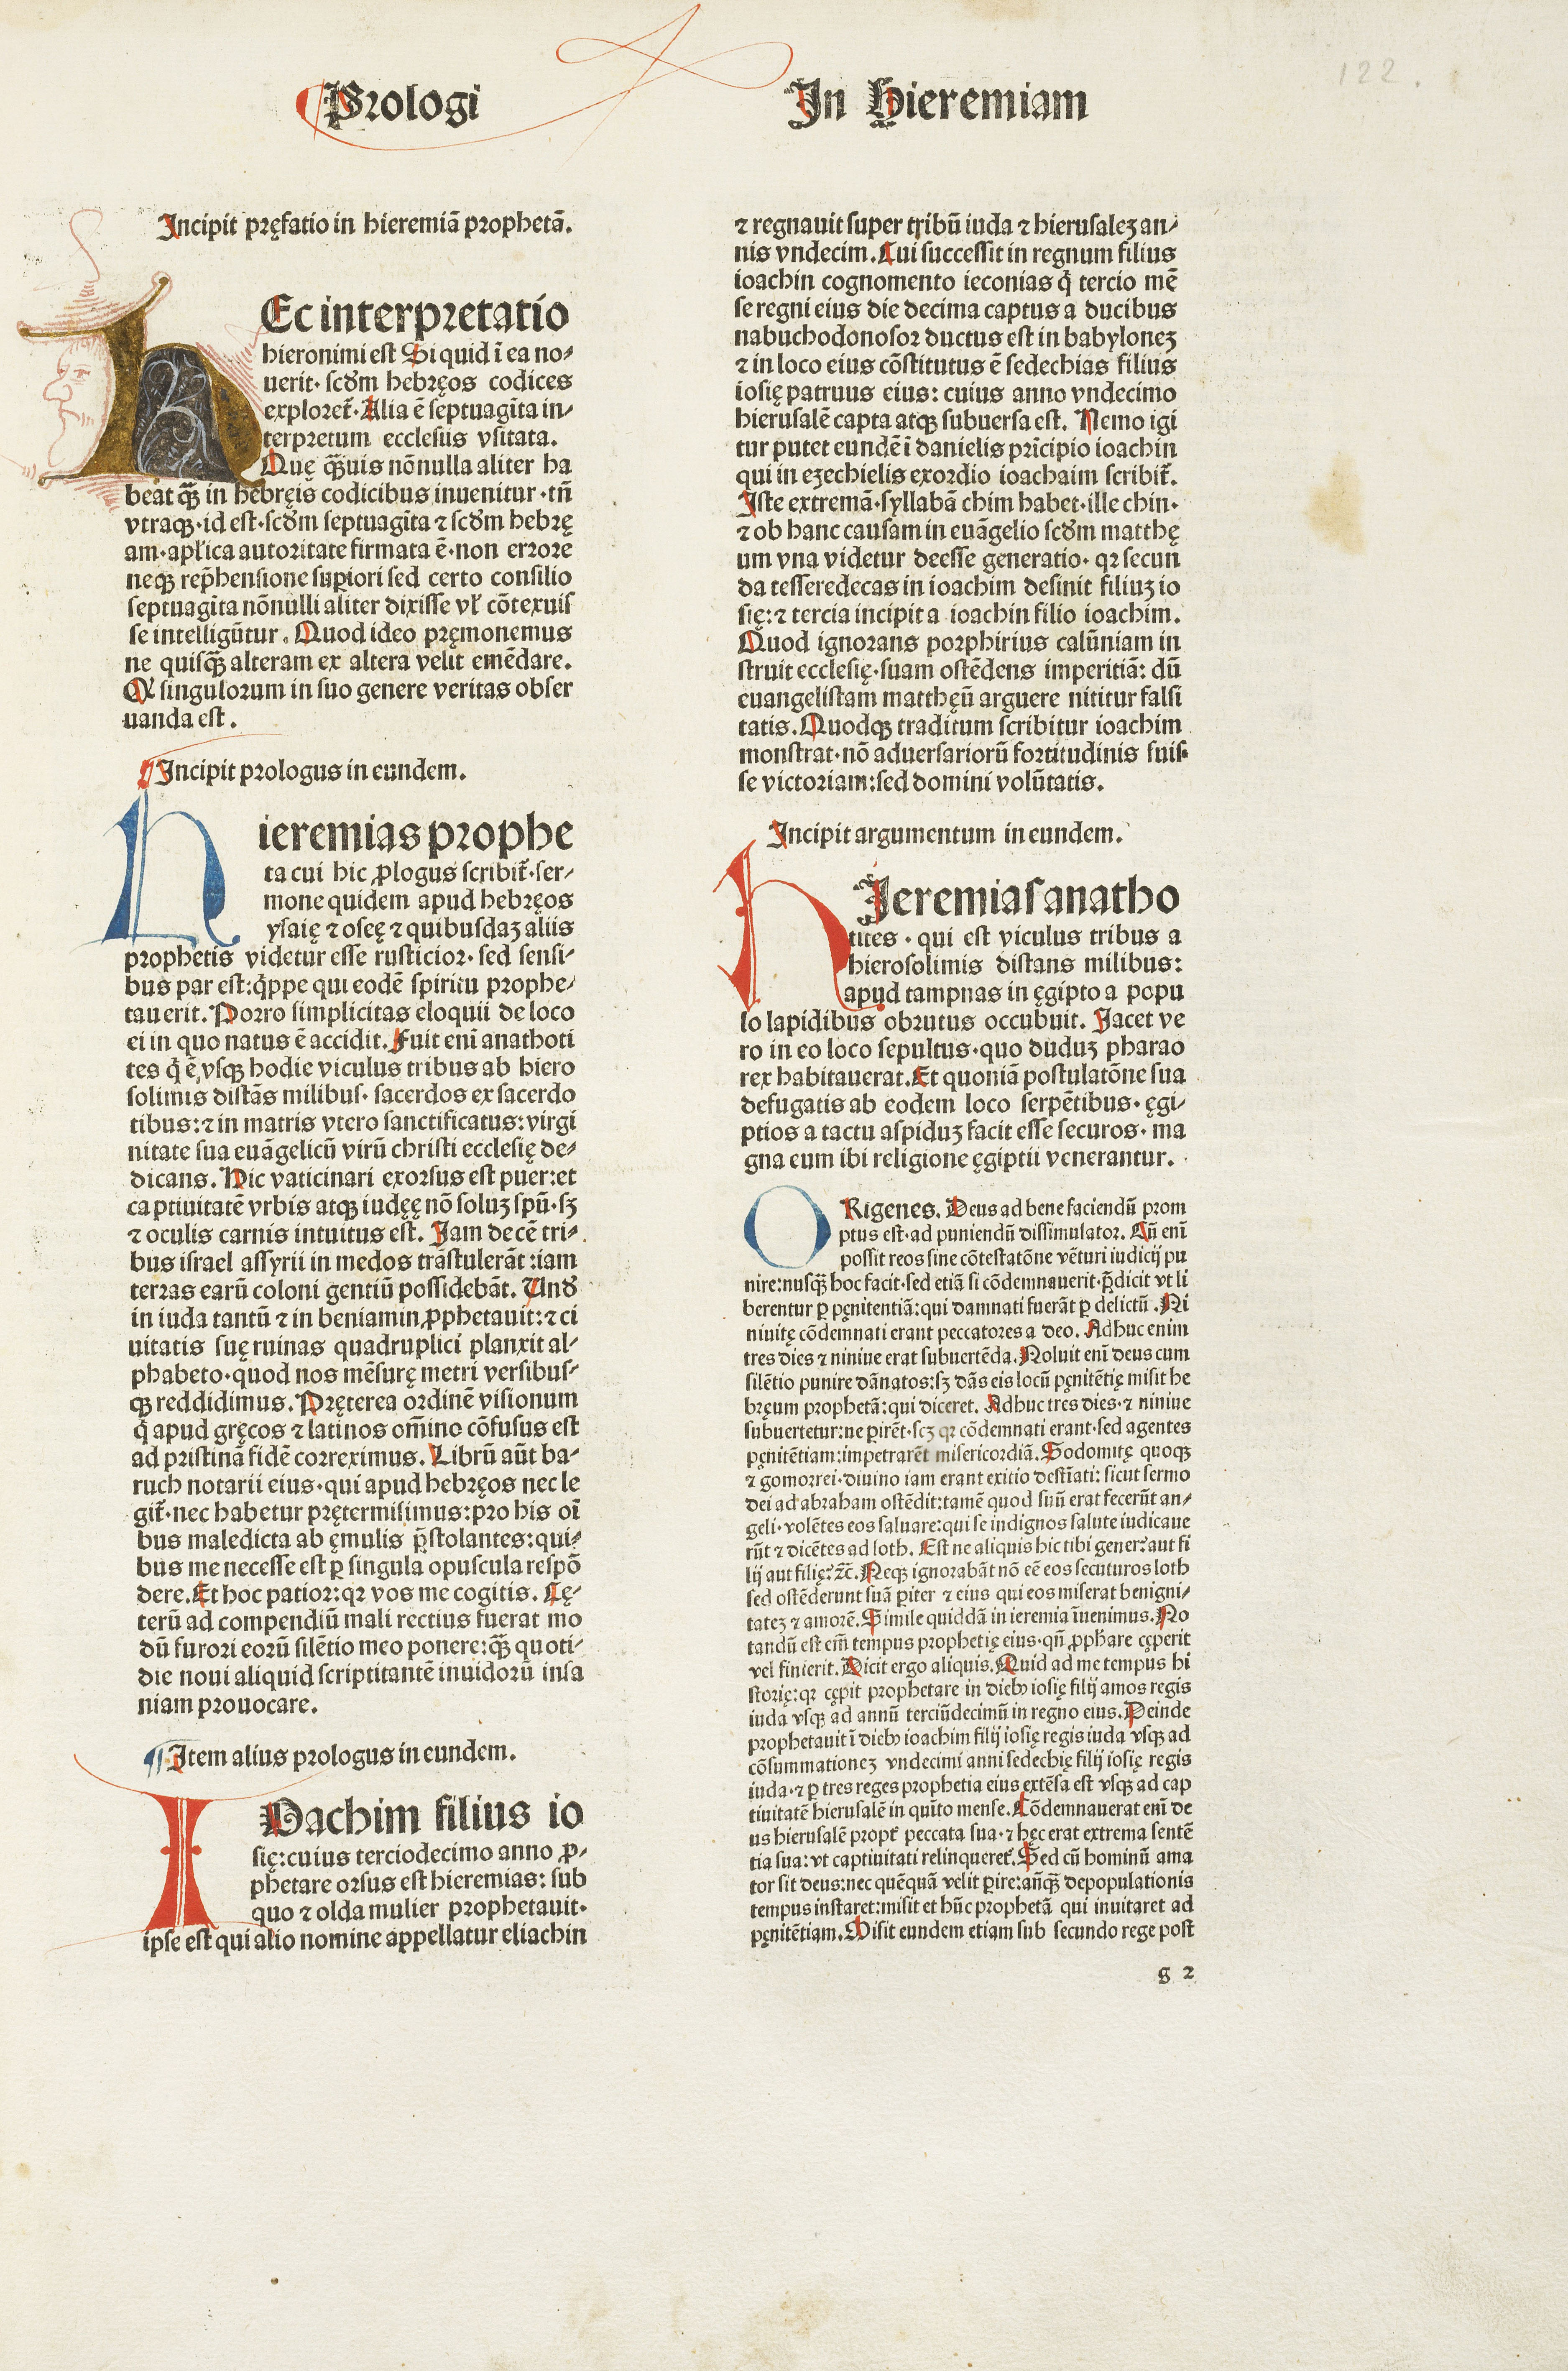 Prologi
In Hieremiam
122
Incipit pręfatio in hieremiā prophetā.
HEc interpretatio
hieronimi est Si quid ī ea no-
uerit· scďm hebręos codices
exploret̄· Alia ē septuagīta in-
terpretum ecclesiis vsitata.
Quę qȝuis nōnulla aliter ha
beāt qȝ in hebręis codicibus inuenitur·tn̄
vtraqȝ·id est·scďm septuagīta ⁊ scďm hebrę
am·apl'ica autoritate firmata ē·non errore
neqȝ rep̄hensione suꝑiori sed certo consilio
septuagīta nōnulli aliter dixisse vl' cōtexuis
se intelligūtur. Quod ideo pręmonemus
ne quisqȝ alteram ex altera velit emēdare.
Qꝛ singulorum in suo genere veritas obser
uanda est.
¶ Incipit prologus in eundem.
Hieremias prophe
ta cui hic ꝓlogus scribit̄·ser-
mone quidem apud hebręos
ysaię ⁊ oseę ⁊ quibusdaȝ aliis
prophetis videtur esse rusticior·sed sensi-
bus par est:q̄ppe qui eodē spiritu prophe-
tauerit. Porro simplicitas eloquii de loco
ei in quo natus ē accidit. Fuit enī anathoti
tes q̄ ē vsqȝ hodie viculus tribus ab hiero
solimis distās milibus· sacerdos ex sacerdo
tibus:⁊ in matris vtero sanctificatus:virgi
nitate sua euāgelicū virū christi ecclesię de-
dicans. Hic vaticinari exorsus est puer:et
captiuitatē vrbis atqȝ iudęę nō soluȝ spū·sȝ
⁊ oculis carnis intuitus est. Iam decē tri-
bus israel assyrii in medos trāstulerāt:iam
terras earū coloni gentiū possidebāt. Vnď
in iuda tantū ⁊ in beniamin ꝓphetauit:⁊ ci
uitatis suę ruinas quadruplici planxit al-
phabeto·quod nos mēsurę metri versibus-
qȝ reddidimus. Pręterea ordinē visionum
q̄ apud gręcos ⁊ latinos om̄ino cōfusus est
ad pristinā fidē correximus. Librū aūt ba-
ruch notarii eius·qui apud hebręos nec le
git̄·nec habetur prętermisimus:pro his oī
bus maledicta ab ęmulis p̄stolantes:qui-
bus me necesse est ꝑ singula opuscula respō
dere. Et hoc patior:qꝛ vos me cogitis. Cę-
terū ad compendiū mali rectius fuerat mo
dū furori eorū silētio meo ponere:qȝ quoti-
die noui aliquid scriptitantē inuidorū insa
niam prouocare.
¶ Item alius prologus in eundem.
IOachim filius io
się:cuius terciodecimo anno ꝓ-
phetare orsus est hieremias: sub
quo ⁊ olda mulier prophetauit·
ipse est qui alio nomine appellatur eliachin
⁊ regnauit super tribū iuda ⁊ hierusaleȝ an-
nis vndecim. Cui successit in regnum filius
ioachin cognomento ieconias q̄ tercio mē
se regni eius die decima captus a ducibus
nabuchodonosor ductus est in babyloneȝ
⁊ in loco eius cōstitutus ē sedechias filius
iosię patruus eius: cuius anno vndecimo
hierusalē capta atqȝ subuersa est. Nemo igi
tur putet eundē ī danielis prīcipio ioachin
qui in ezechielis exordio ioachaim scribit̄.
Iste extremā·syllabā chim habet·ille chin·
⁊ ob hanc causam in euāgelio scďm matthę
um vna videtur deesse generatio· qꝛ secun
da tesseredecas in ioachim desinit filiuȝ io
się:⁊ tercia incipit a ioachin filio ioachim.
Quod ignorans porphirius calūniam in
struit ecclesię·suam ostēdens imperitiā: dū
euangelistam matthęū arguere nititur falsi
tatis. Quodqȝ traditum scribitur ioachim
monstrat·nō aduersariorū fortitudinis fuis-
se victoriam:sed domini volūtatis.
Incipit argumentum in eundem.
HIeremias anatho
tites · qui est viculus tribus a
hierosolimis distans milibus:
apud tampnas in ęgipto a popu
lo lapidibus obrutus occubuit. Iacet ve
ro in eo loco sepultus·quo duduȝ pharao
rex habitauerat. Et quoniā postulatōne sua
defugatis ab eodem loco serpētibus· ęgi-
ptios a tactu aspiduȝ facit esse securos· ma
gna eum ibi religione ęgiptii venerantur.
ORigenes. Deus ad bene faciendū prom
ptus est·ad puniendū dissimulator. Cū enī
possit reos sine cōtestatōne vēturi iudicij pu
nire:nusqȝ hoc facit·sed etiā si cōdemnauerit·p̄dicit vt li
berentur ꝑ pęnitentiā:qui damnati fuerāt ꝑ delictū. Ni
niuitę cōdemnati erant peccatores a deo. Adhuc enim
tres dies ⁊ niniue erat subuertēda. Noluit enī deus cum
silētio punire dānatos:sȝ dās eis locū pęnitētię misit he
bręum prophetā:qui diceret. Adhuc tres dies·⁊ niniue
subuertetur:ne ꝑirēt·scȝ qꝛ cōdemnati erant·sed agentes
pęnitētiam:impetrarēt misericordiā. Sodomitę quoqȝ
⁊ gomorrei·diuino iam erant exitio destīati: sicut sermo
dei ad abraham ostēdit:tamē quod suū erat fecerūt an-
geli·volētes eos saluare:qui se indignos salute iudicaue
rūt ⁊ dicētes ad loth. Est ne aliquis hic tibi gener?aut fi
lij aut filię?⁊c̄. Neqȝ ignorabāt nō eē eos secuturos loth
sed ostēderunt suā ꝑiter ⁊ eius qui eos miserat benigni-
tateȝ ⁊ amorē. Simile quiddā in ieremia īuenimus. No
tandū est em̄ tempus prophetię eius·qn̄ ꝓphare cęperit
vel finierit. Dicit ergo aliquis. Quid ad me tempus hi
storię:qꝛ cępit prophetare in dieb₉ iosię filij amos regis
iuda vsqȝ ad annū terciūdecimū in regno eius. Deinde
prophetauit ī dieb₉ ioachim filij iosię regis iuda vsqȝ ad
cōsummationeȝ vndecimi anni sedechię filij iosię regis
iuda·⁊ ꝑ tres reges prophetia eius extēsa est vsqȝ ad cap
tiuitatē hierusalē in quīto mense. Cōdemnauerat enī de
us hierusalē propt̄ peccata sua·⁊ hęc erat extrema sentē
tia sua: vt captiuitati relinqueret̄. Sed cū hominū ama
tor sit deus:nec quēquā velit ꝑire:anqȝ depopulationis
tempus instaret:misit et hūc prophetā qui inuitaret ad
pęnitētiam. Misit eundem etiam sub secundo rege post
g 2